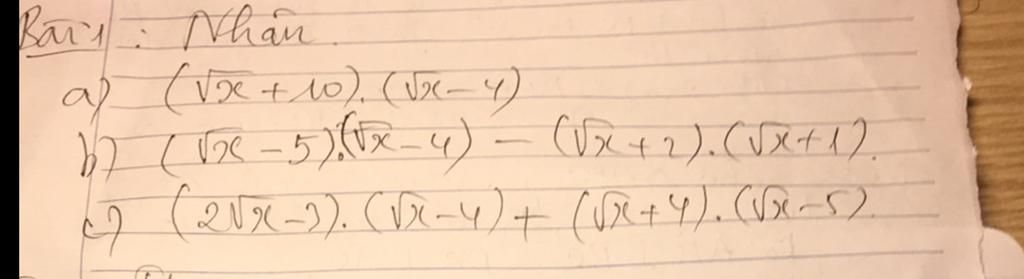 Bài 1 : Nhân.
a) (√x + 10).(√x - 4)
b) (√x - 5).(√x - 4) - (√x + 2).(√x + 1).
c) (2√x - 3).(√x - 4) + (√x + 4).(√x - 5).